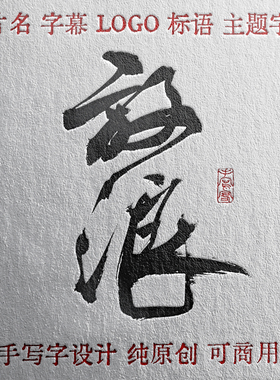 名 字幕 LOGO 标语 主题字
放浪
手写字设计 纯原创 可商用